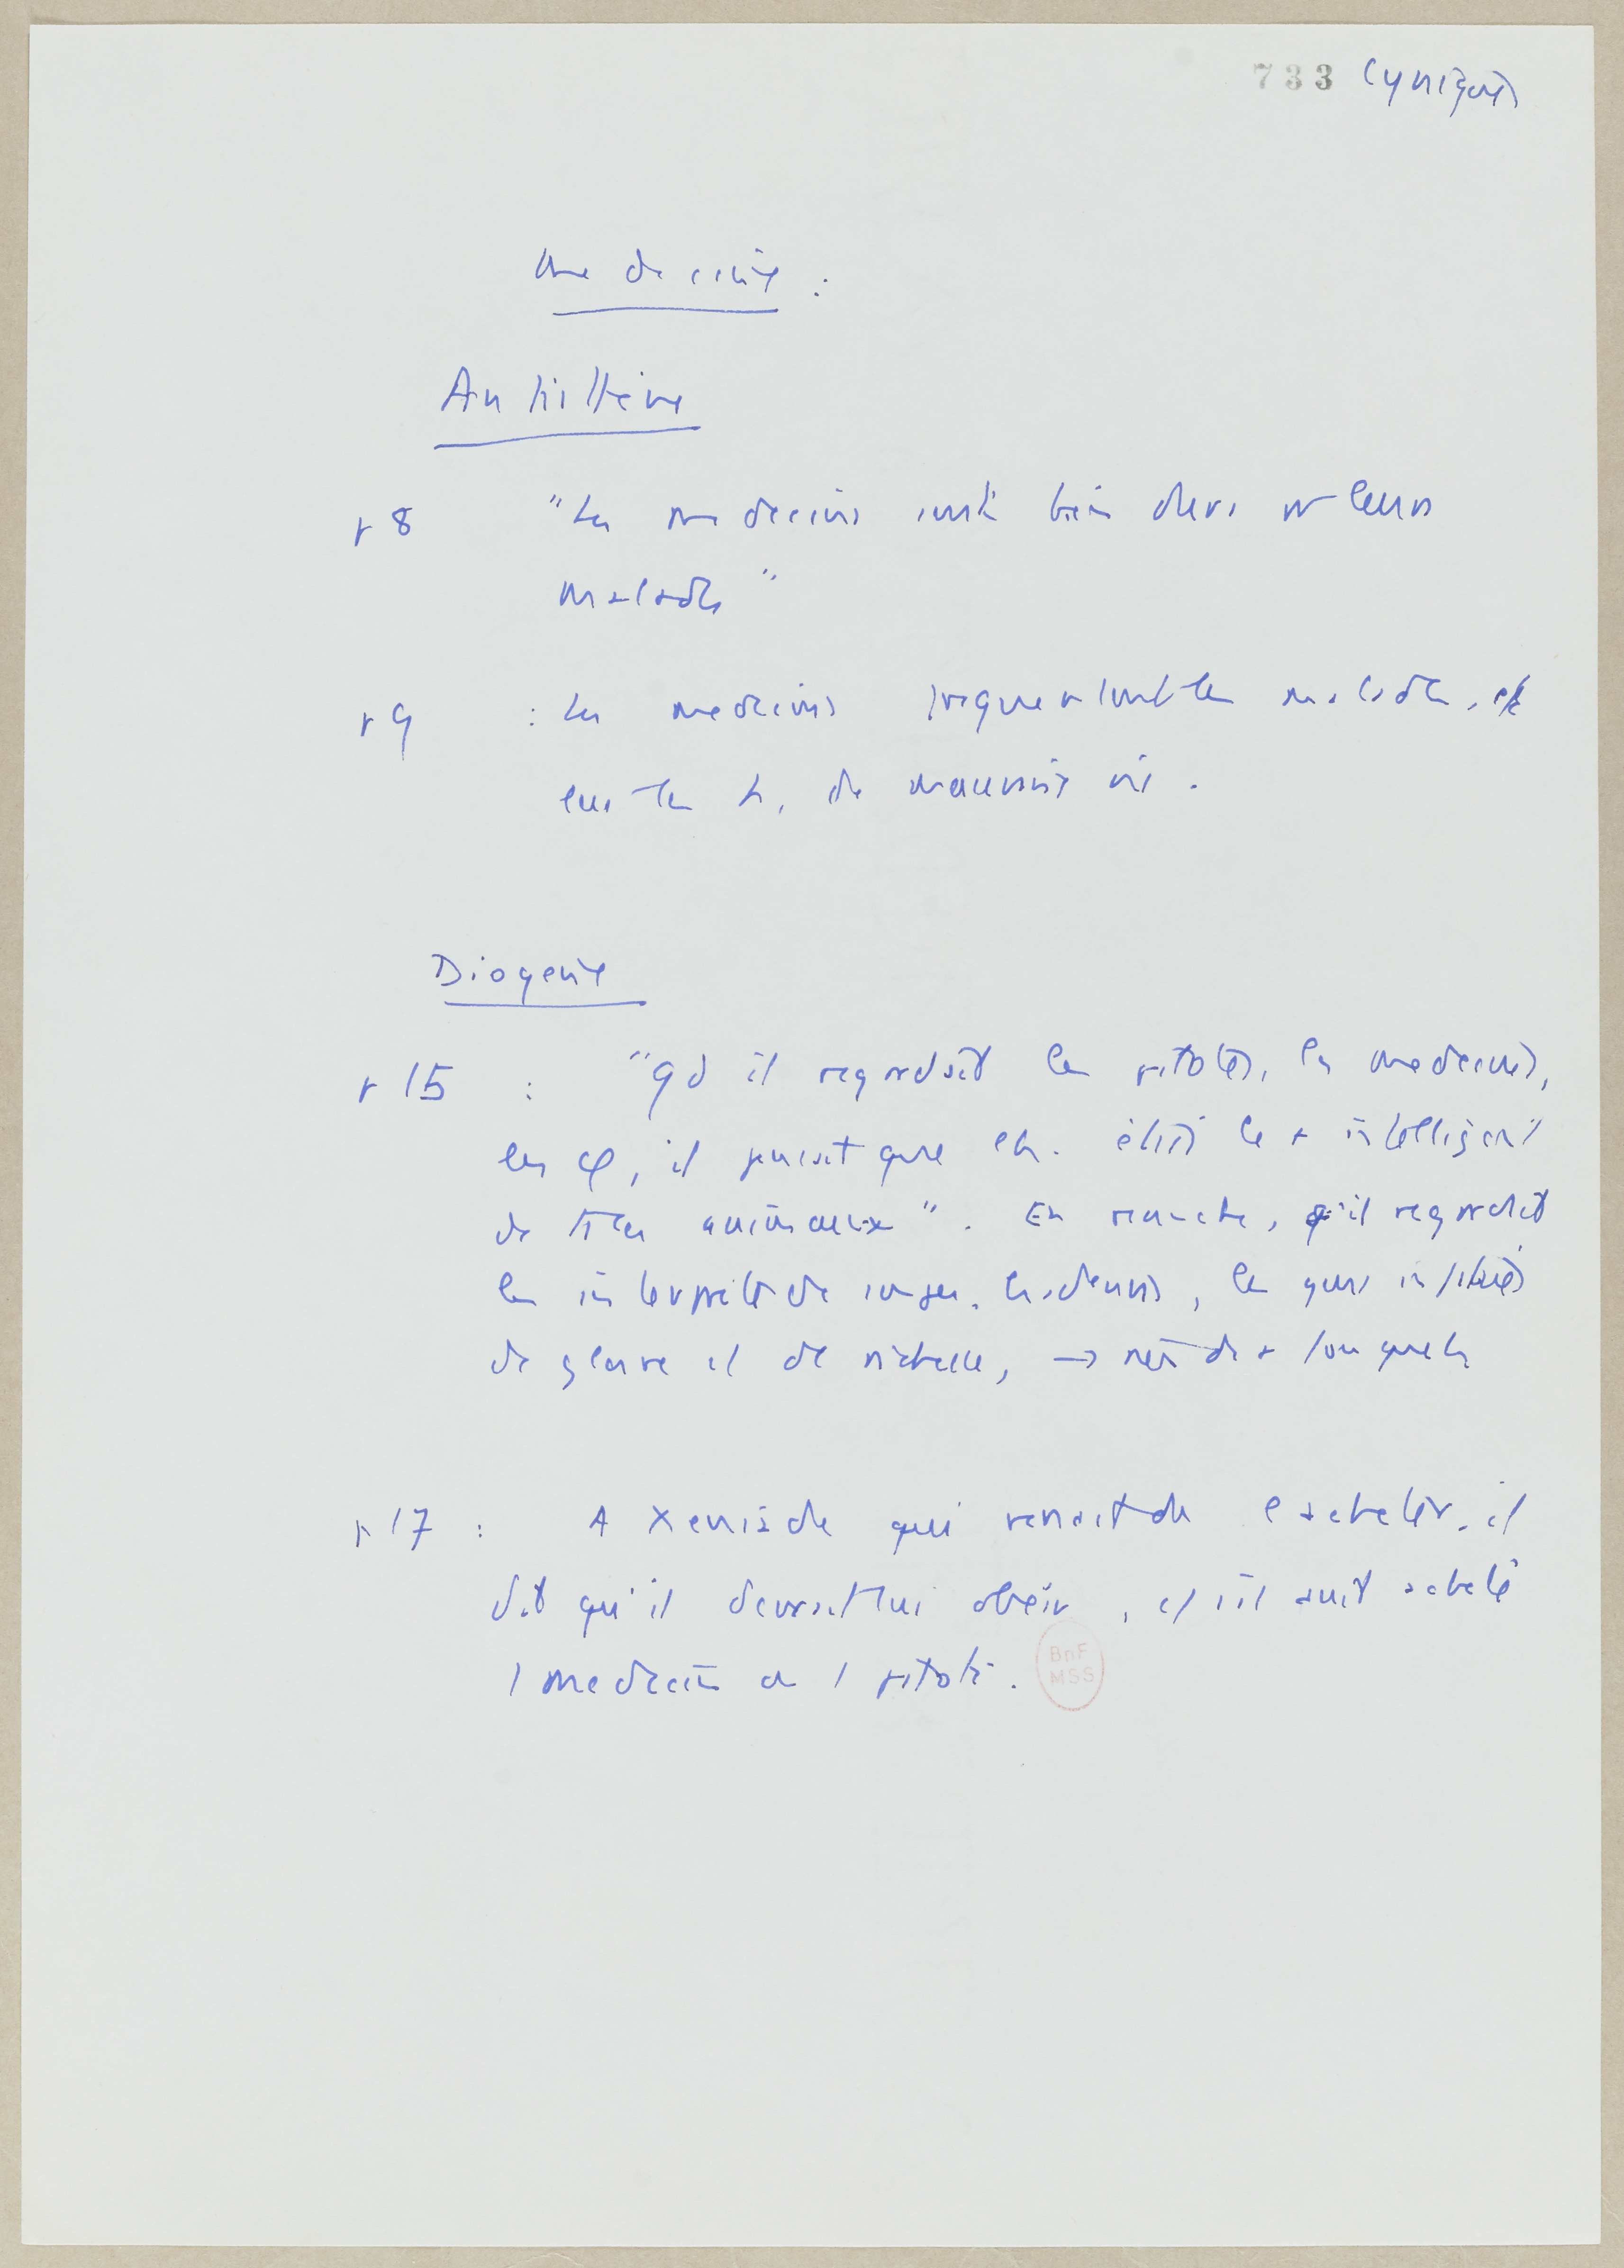 733 Cyniques
Medecine :
Antisthène
p 8 "Les medecins sont bien durs pr leurs
malades"
p 9 : Les medecins frequentent les malades, et
eux les h. de mauvaise vie.
Diogene
p 15 : "Qd il regardait les pilotes, les medecins,
les φ, il pensait que l'h. était le + intelligent
de ts les animaux". En revanche, qd il regardait
les interpretes de songes, les devins, les gens infatués
de gloire et de richesse, → rien de + fou que l'h
p 17 : A Xeniade qui venait de l'acheter, il
dit qu'il devrait lui obéir, cf s'il avait acheté
1 medecin ou 1 pilote.
BnF
MSS